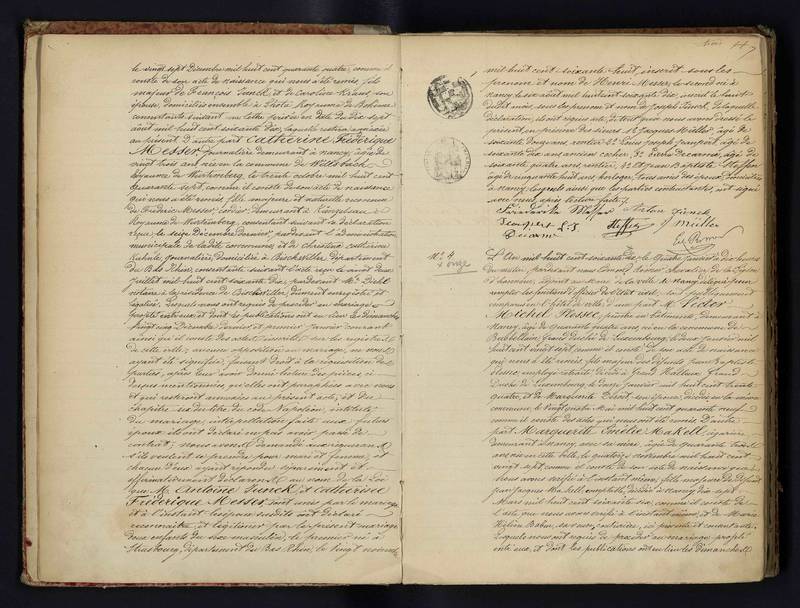 le vingt sept Décembre mil huit cent quarante quatre, comme il
conste de son acte de naissance qui nous a été remis, fils
majeur de François Junck et de Caroline Kraus son
épouse, domiciliés ensemble à Royaume de Bohême
consentants suivant une lettre privée en date du dix sept
août mil huit cent soixante dix, laquelle restera annexée
au présent. D'autre part Catherine Fréderique
Messer, journalière demeurant à Nancy, âgée de
vingt trois ans née en la commune de
Royaume de Wurtemberg, le trente octobre mil huit cent
quarante sept, comme il conste de son acte de naissance
qui nous a été remis, fille majeure et naturelle reconnue
de Fréderic Messer, cordier, demeurant à
Royaume de Wurtemberg, consentant suivant la déclaration
reçue le seize décembre dernier, pardevant l'administration
municipale de ladite commune, et de Christine Catherine
journalière, domiciliée à Bischwiller département
du Bas Rhin, consentante suivant l'acte reçu le
juillet mil huit cent soixante dix, pardevant Me
notaire à la résidence de Bischwiller, dûment enregistré et
légalisé. Lesquels nous ont requis de procéder au mariage
projeté entre eux, et dont les publications ont eu lieu les dimanches
vingt cinq Décembre dernier et premier janvier courant
ainsi qu'il conste des actes inscrits sur les registres
de cette ville; aucune opposition au mariage, ne nous
ayant été signifiée, faisant droit à la réquisition des
parties, après leur avoir donné lecture des pièces ci
dessus mentionnées qu'elles ont paraphées avec nous
et qui resteront annexées au présent acte, et du
chapitre six du titre du code Napoléon, intitulé:
du mariage, interpellation faite aux futurs
époux s'ils ont déclaré ne pas avoir passé de
contrat; nous avons demandé aux requérants
s'ils veulent se prendre pour mari et femme, et
chacun d'eux ayant répondu séparément et
affirmativement déclarons au nom de la Loi
que M. Antoine Junck et Catherine
Fréderique Messer sont unis par le mariage
et à l'instant les époux susdits ont déclaré
reconnaître et légitimer par le présent mariage
deux enfants du sexe masculin, le premier né à
Strasbourg, département du Bas Rhin, le vingt
mil huit cent soixante huit, inscrit sous les
prénom et nom de Henri Messer, le second né à
Nancy, le six août mil huit cent soixante dix, inscrit le huit
dudit mois, sous les prénom et nom de Joseph Junck, de laquelle
déclaration, ils ont requis acte, de tout quoi nous avons dressé le
présent en présence des sieurs 1° Jacques Müller, âgé de
soixante ans rentier, 2° Louis Joseph Jempert, âgé de
soixante dix ans ancien cocher, 3° Pierre Decarme, âgé de
soixante quatre ans, rentier, 4° et Jean Baptiste Steffen
âgé de cinquante huit ans, horloger, tous amis des époux, domiciliés
à Nancy, lesquels ainsi que les parties contractantes, ont signé
avec nous après lecture faite.
Friederike Messer Anton Junck
Jempert L. J Steffen J Müller
Decarme
N° 4
L'An mil huit cent soixante onze, le quatre janvier à dix heures
du matin, pardevant nous chevalier de la Légion
d'honneur, adjoint au Maire de la ville de Nancy, délégué pour
remplir les fonctions d'officier de l'état civil, ont publiquement
comparu en l'hôtel de ville, d'une part M.
Michel Hosse, peintre en bâtiments, demeurant à
Nancy, âgé de quarante quatre ans, né en la commune de
Grand Duché de Luxembourg, le deux janvier mil
huit cent vingt sept comme il conste de son acte de naissance
qui nous a été remis, fils majeur des défunts Jean Baptiste
Hosse, employé retraité décédé à Grand
Duché de Luxembourg, le douze janvier mil huit cent trente
quatre, et de Marguerite son épouse, décédée en la même
commune, le vingt mai mil huit cent quarante neuf
comme il conste des actes qui nous ont été remis. D'autre
part Marguerite Emélie Makell, lingère,
demeurant à Nancy, avec sa mère, âgée de quarante trois
ans, née en cette ville, le quatorze novembre mil huit cent
vingt sept, comme il conste de son acte de naissance que
nous avons vérifié à l'instant même, fille majeure de défunt
Jacques Makell, décédé à Nancy, le dix sept
mars mil huit cent soixante six, comme il conste de
l'acte que nous avons vérifié à l'instant même, et de Marie
sa veuve, couturière, ici présente et consentante.
Lesquels nous ont requis de procéder au mariage projeté
entre eux, et dont les publications ont eu lieu les dimanches